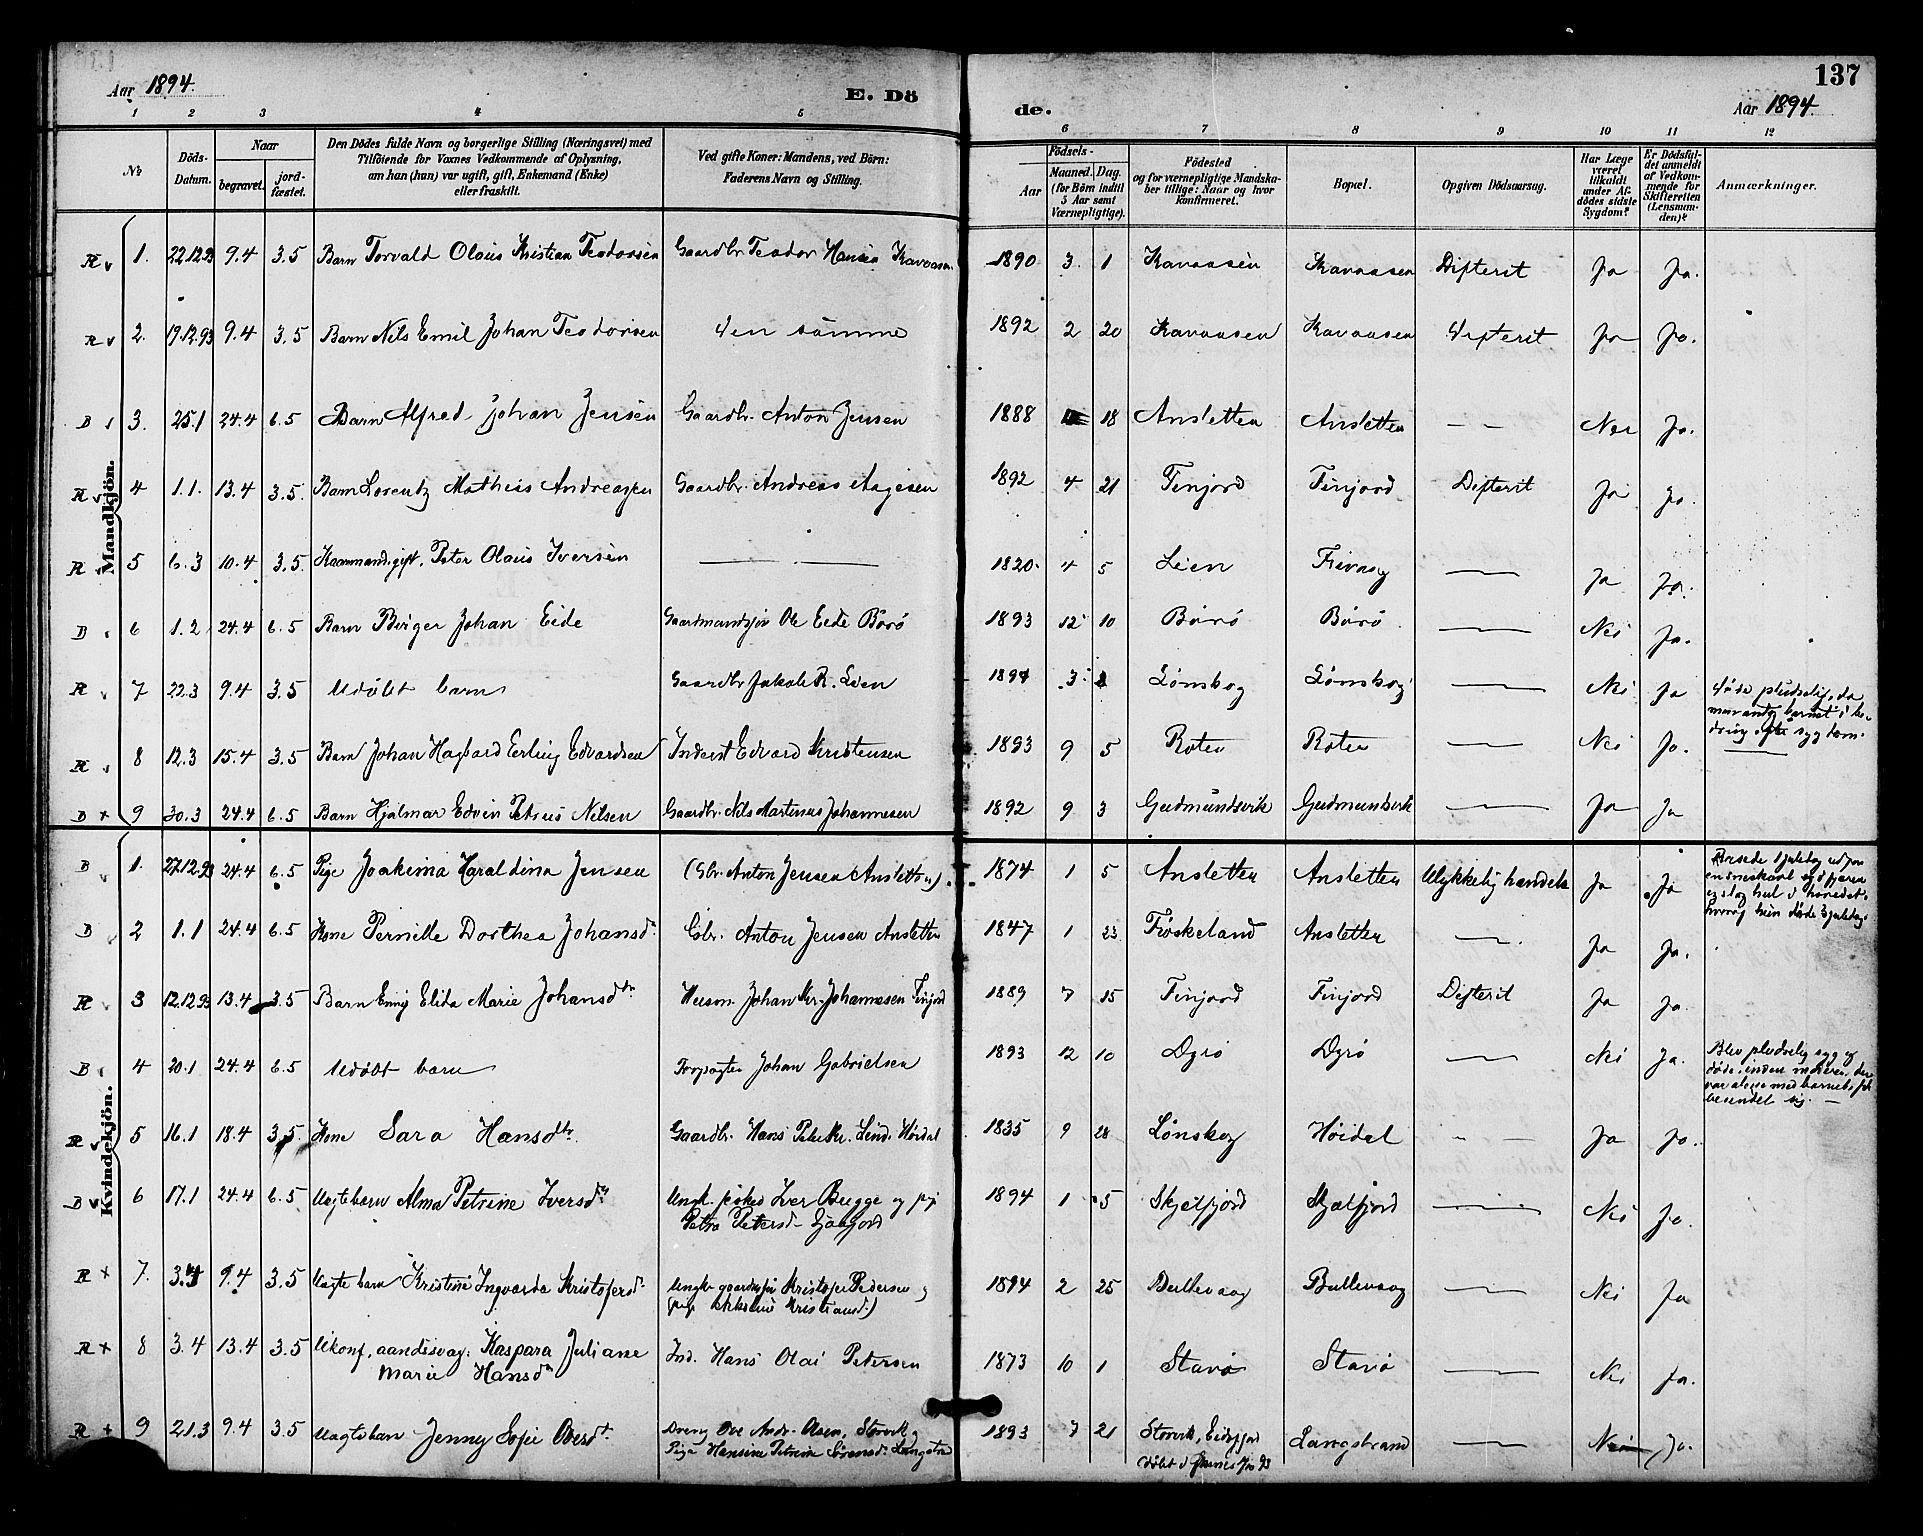 Aar 1894.
E. Dö
de.
137
Aar 1894
1 2 3 4 5 6 7 8 9 10 11 12
No
Döds-Datum.
Naar
begravet.
jord-fæstet.
Den Dödes fulde Navn og borgerlige Stilling (Næringsvei) med
Tilföiende for Voxnes Vedkommende af Oplysning,
om han (hun) var ugift, gift, Enkemand (Enke)
eller fraskilt.
Ved gifte Koner: Mandens, ved Börn:
Faderens Navn og Stilling.
Födsels-
Aar
Maaned. Dag.
(for Börn indtil
5 Aar samt
Værnepligtige).
Födested
og for værnepligtige Mandska-
ber tillige: Naar og hvor
konfirmeret.
Bopæl.
Opgiven Dödsaarsag.
Har Læge
været
tilkaldt
under Af-
dödes sidste
Sygdom?
Er Dödsfal-
det anmeldt
af Vedkom-
mende for
Skifteretten
(Lensman-
den)?
Anmærkninger.
Mandkjön.
1. 22.12.93 9.4 3.5 Barn Torvald Olaus Kristian Teodorsen Gaardbr. Teodor Hansen Kavaasen 1890 3 1 Kavaasen Kavaasen Difterit Ja Ja.
2. 19.12.93 9.4 3.5 Barn Nils Emil Johan Teodorsen den samme 1892 2 20 Kavaasen Kavaasen Difterit Ja Ja.
3. 25.1 24.4 6.5 Barn Alfred Johan Jensen Gaardbr. Anton Jensen 1888 18 Ansletten Ansletten — — Nei Ja.
4 1.1. 13.4 3.5. Barn Lorentz Matheus Andreassen Gaardbr. Andreas Aagesen 1892 4 21 Finjord Finjord Difterit Ja Ja.
5 6.3 10.4 3.5. gift. Peter Olaus Iversen — — 1820. 4 5 Leien — Ja Ja.
6 1.2 24.4 6.5 Barn Birger Johan Eide Ole Eide Börö 1893 12 10 Börö Börö — Nei Ja.
7 22.3 9.4 3.5 Udöbt barn Gaardbr Jakob R. Lien 1894 3 Lönskog Lönskog — Nei Ja
Döde pludselig, da
man antog barnet i be-
dring efter sygdom.
8 12.3 15.4 3.5 Barn Johan Hagbard Erling Edvardsen Inderst Edvard Kristensen 1893 9 5 Roten Roten — Nei Ja.
9 30.3 24.4 6.5 Barn Hjalmar Edvin Petrus Nilsen Gaardbr. Nils Martinus Johannesen 1892 9 3 Gudmundsvik Gudmundsvik — Ja Ja
Kvindekjön.
1. 27.12.93 24.4 6.5 Pige Joakima Haraldina Jensen (Gbr. Anton Jensen Ansletten). 1874 1 5 Ansletten Ansletten Ulykkelig handelse Ja Ja
2 1.1 24.4 6.5 Kone Pernille Dorthea Johansdtr Gbr. Anton Jensen Ansletten 1847 1 23 Fiskeland Ansletten — Ja Ja.
3 12.12.93 13.4 3.5 Barn Emij Elida Marie Johansdtr Husm. Johan Kr. Johannesen Finjord 1889 7 15 Finjord Finjord Difterit Ja Ja.
4 20.1 24.4 6.5 Udöbt barn Forpagter Johan Gabrielsen 1893 12 10 Dyrö Dyrö — Nei Ja.
Blev pludselig syg og
döde, inden moderen, der
var alene med barnet, fik
besindet sig. —
5 16.1 18.4 3.5. Kone Sara Hansdtr. Gaardbr. Hans Peter Kr. Lind. Höidal 1835 9 28 Lönskog Höidal — Ja Ja.
6 17.1 24.4 6.5 Uægte barn Alma Petrine Iversdtr Ungk. fisker Iver Bugge og pige 1894 1 5 Skjelfjord Skjelfjord — Nei Ja.
Petra Petersd.
7. 3.4 9.4 3.5 Uægte barn Kristine Ingvarda Kristofersdtr Ungk. Kristofer Pedersen og 1894 2 25 Bullevaag Bullevaag — Nei Ja
8 3.4 13.4 3.5 Ukonf., aandssvag. Kaspara Juliane Ind. Hans Olai Petersen 1873 10 1 Stavö Stavö — Nei Ja.
Marie Hansdtr
9 21.3 9.4 3.5 Uægte barn Jenny Sofie Ovesdtr. Dreng Ove Andr. Olsen, Storvik og 1893 7 21 Storvik, Eidsfjord Langstrand — Nei Ja.
Pige Hansine Petrine Sörensdtr Langstrand